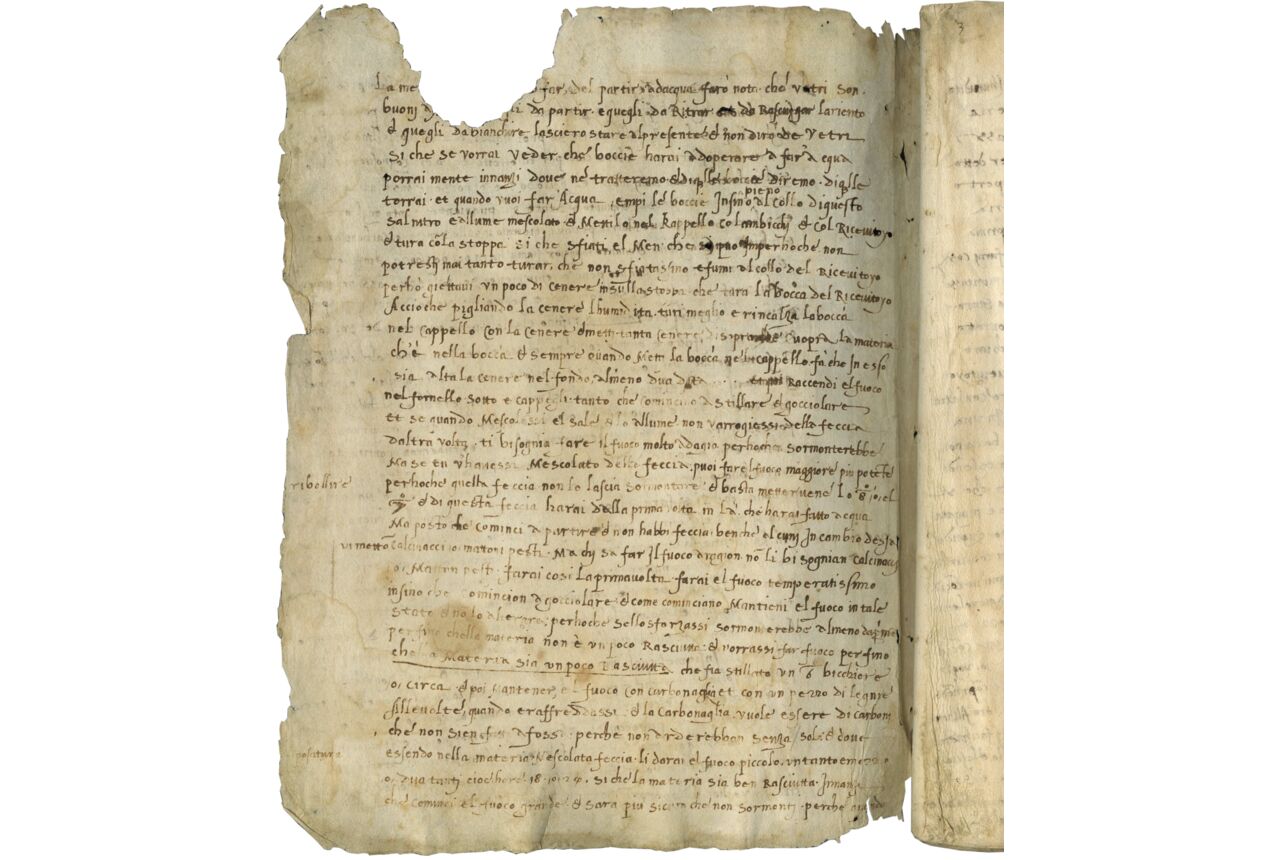 La me far, del partir, adacqua farò nota che vetri son
buoni da partir e quegli da Ritrar da Rasciugar lariento
& quegli da bianchire lasciero stare al presente & non diro de Vetri
Si che se vorrai veder che boccie harai adoperare a far acqua
porrai mente innanzi dove ne tratteremo & diremo diqlle
torrai et quando vuoi far Acqua, empi le boccie Insino pieno al collo di questo
Sal nitro e allume mescolato & Mettilo nel Kappello co lambicchi & col Ricevitoyo
& tura cola stoppa si che sfiati el Men che si puo Imperhoche non
potresti mai tanto turar, che non sfiatasino e fumi al collo del Ricevitoyo
perhò giettavi un poco di cenere insulla stoppa che tura la bocca del Ricevitoyo
Accioche pigliando la cenere lhumidita turi meglio e rincalza la bocca
nel cappello con la cenere & metti tanta cenere Suopra la materia
ch'è nella bocca & sempre quando Metti la bocca nel cappello fa che In esso
sia alta la cenere nel fondo, almeno dua dita Raccendi el fuoco
nel fornello sotto e cappegli tanto che comincino a stillare & gocciolare
Et se quando Mescolassi el Sale & lo allume non varrogiessi della feccia
daltra volta, ti bisognia fare il fuoco molto adagio perhoche Sormonterebbe
Ma se tu vhavessi Mescolato della feccia, puoi fare l fuoco maggiore piu potete
ribollire
perhoche quella feccia non lo lascia sormontare & basta mettervene lo
& di questa feccia harai dalla prima volta in là, che harai fatto acqua
Ma posto che Cominci a partire & non habbi feccia benche alcuni In cambio dessa
vi metton Calcinacci o mattoni pesti. Ma chi sa far Il fuoco aragion no li bisognian Calcinacci
o, Matton pesti farai cosi La prima volta farai el fuoco temperatissimo
insino che comincion a gocciolare & come cominciano Mantieni el fuoco in tale
Stato & no lo alterare perhoche sello sforzassi sormonterebbe almeno
per fino chella materia non è un poco Rasciutta & vorrassi far fuoco per fino
che la Materia sia un poco Rasciutta che fia stillato un 6 bicchiere
o, circa & poi Mantener, el fuoco con carbonaglia et con un pezzo di legnie
Allevolte, quando e raffreddassi & la Carbonaglia vuole essere di carbon
che non sien fa fossi perche non arderebban senza soli & dove
essendo nella materia Mescolata feccia li darai el fuoco piccolo un tanto e mezzo
posatura
o, dua tanti cioe hore 18 o 24, si che la materia sia ben Rasciutta Innanzi
che cominci el fuoco grande & sara piu sicura che non sormonti perche quando